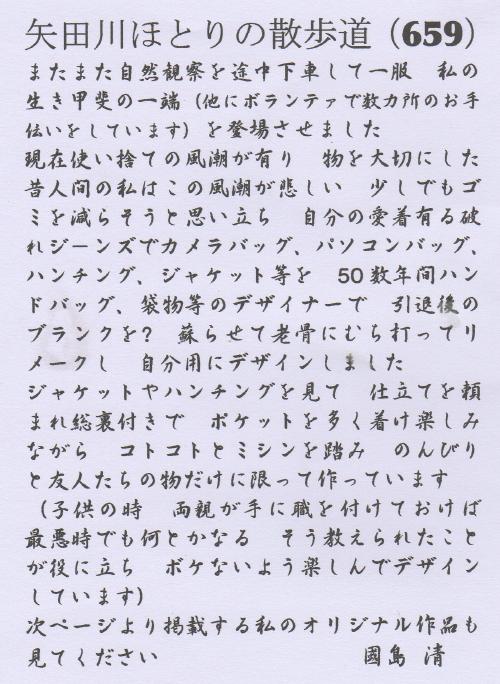 矢田川ほとりの散歩道（659）
またまた自然観察を途中下車して一服　私の
生き甲斐の一端（他にボランテァで数カ所のお手
伝いをしています）を登場させました
現在使い捨ての風潮が有り　物を大切にした
昔人間の私はこの風潮が悲しい　少しでもゴ
ミを減らそうと思い立ち　自分の愛着有る破
れジーンズでカメラバッグ、パソコンバッグ、
ハンチング、ジャケット等を　50数年間ハン
ドバッグ、袋物等のデザイナーで　引退後の
ブランクを?　蘇らせて老骨にむち打ってリ
メークし　自分用にデザインしました
ジャケットやハンチングを見て　仕立てを頼
まれ総裏付きで　ポケットを多く着け楽しみ
ながら　コトコトとミシンを踏み　のんびり
と友人たちの物だけに限って作っています
（子供の時　両親が手に職を付けておけば
最悪時でも何とかなる　そう教えられたこと
が役に立ち　ボケないよう楽しんでデザイン
しています）
次ページより掲載する私のオリジナル作品も
見てください　國島　清